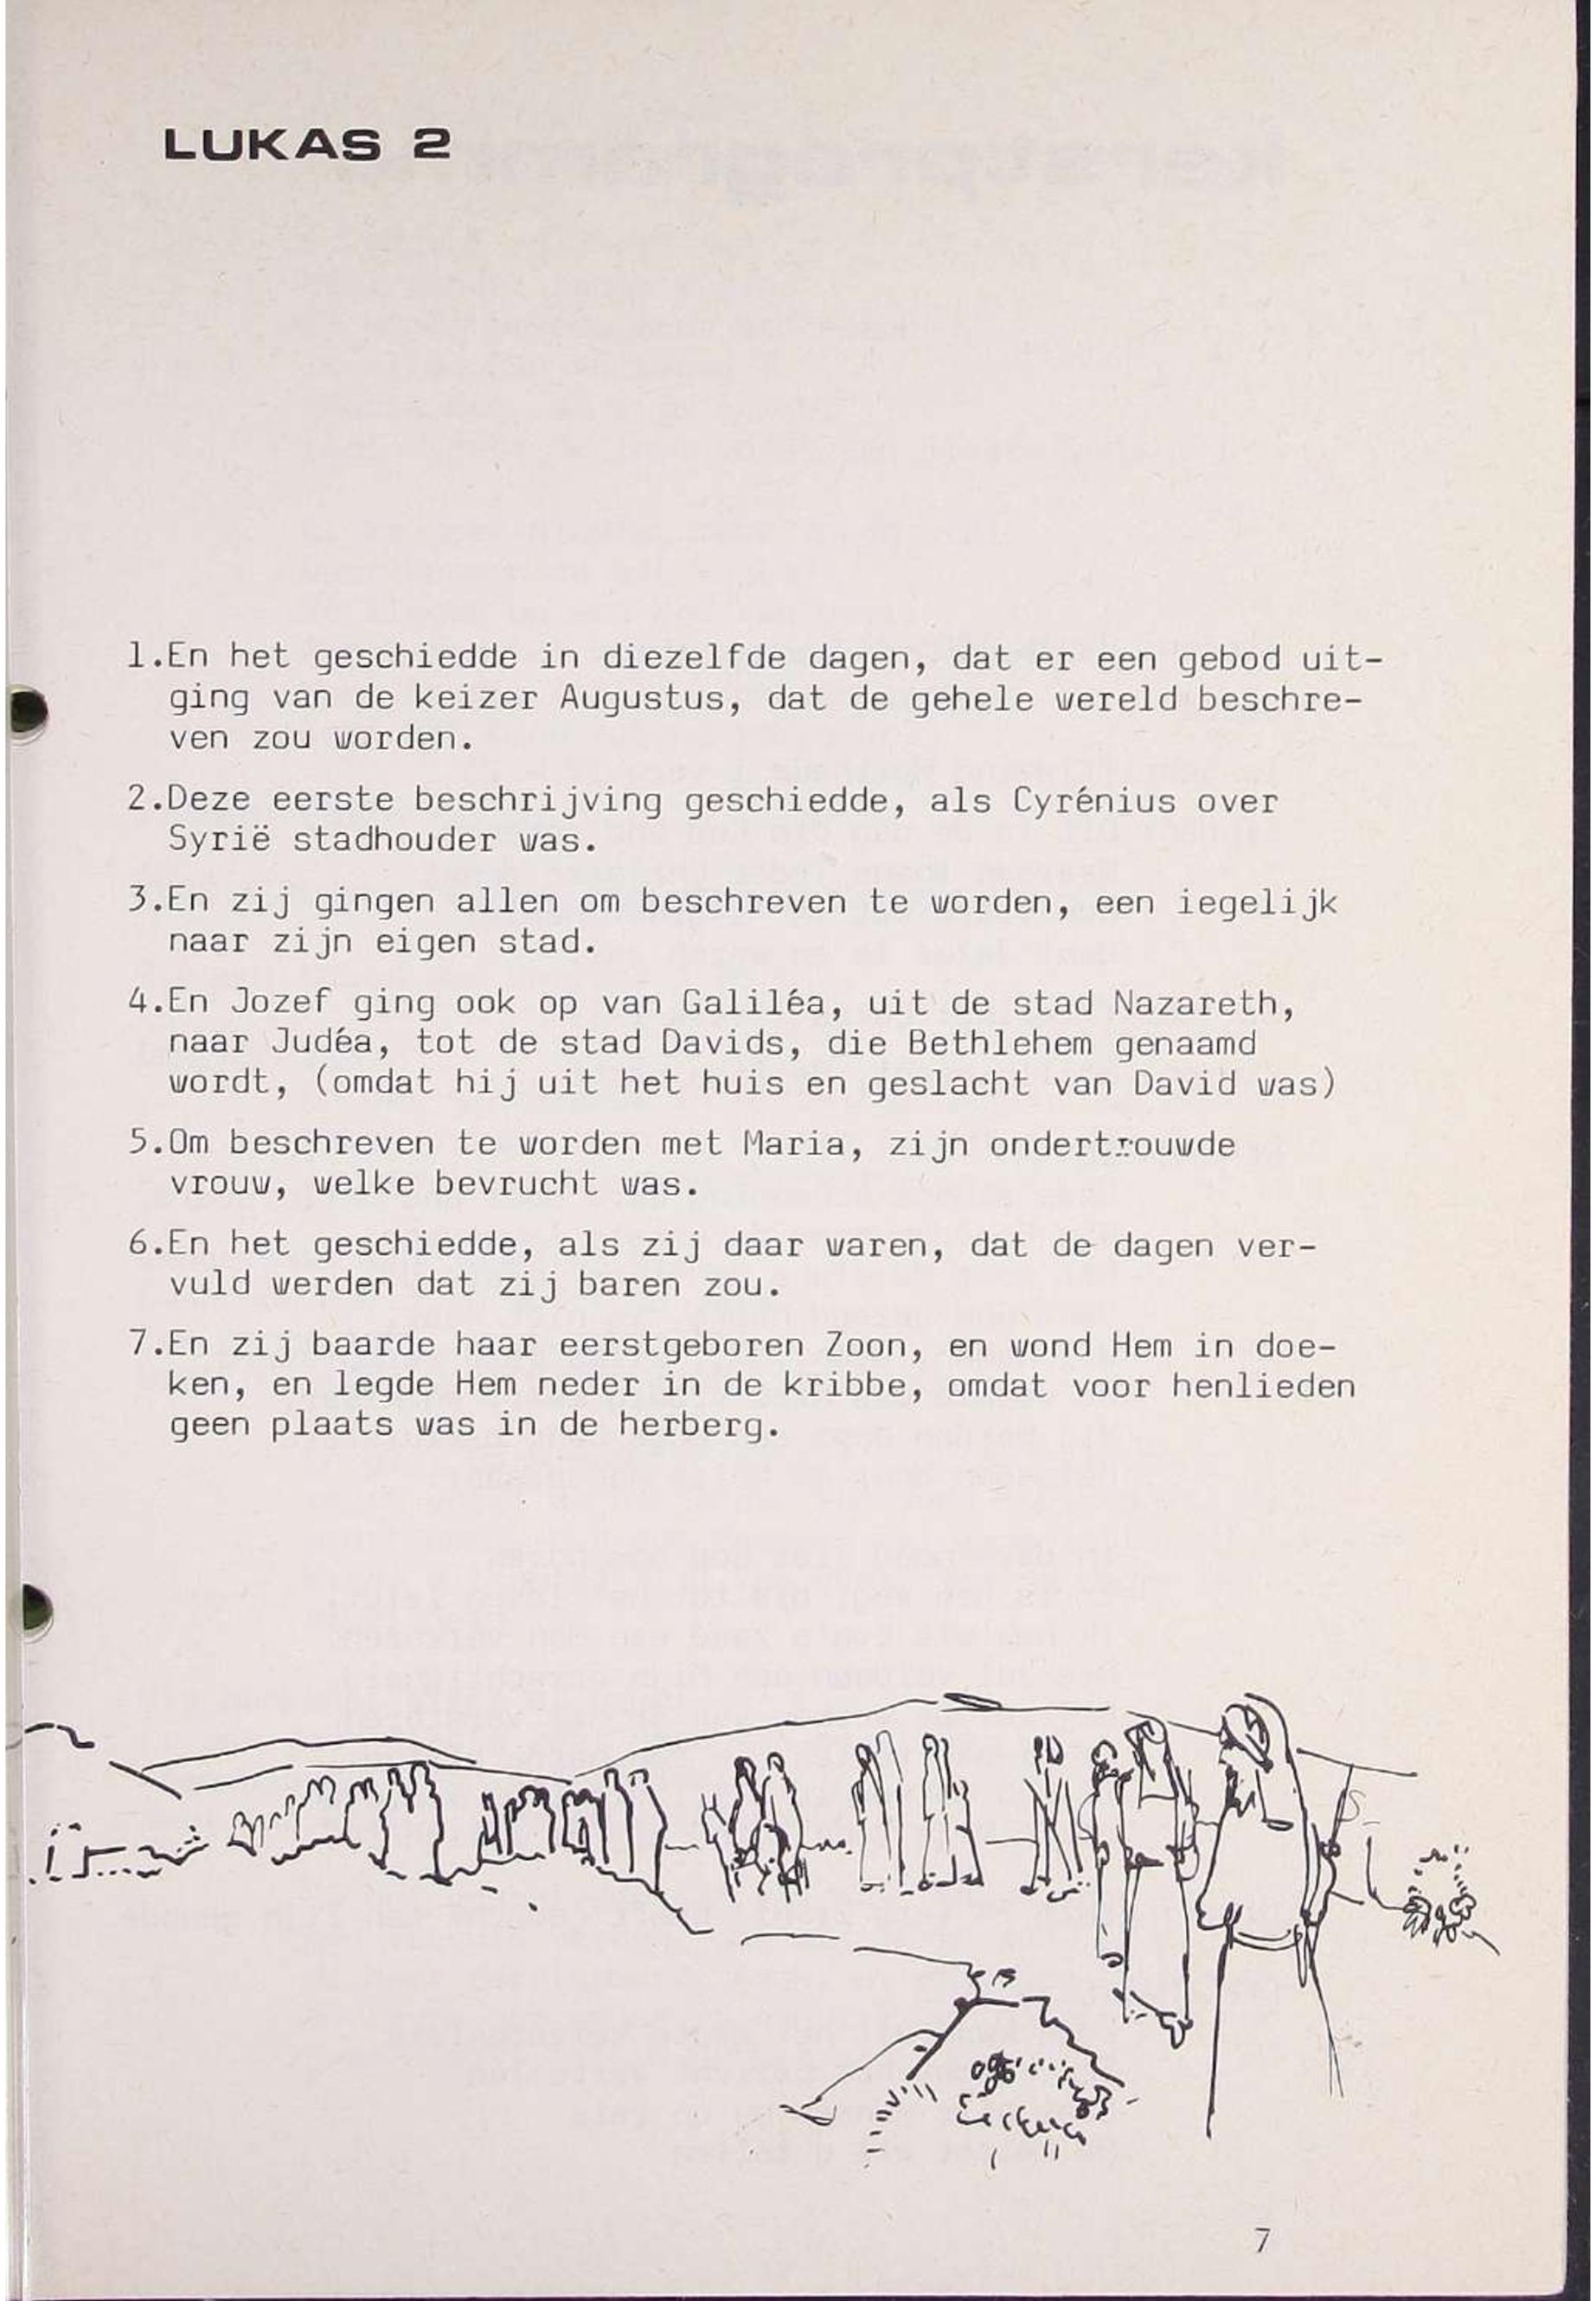 LUKAS 2
1.En het geschiedde in diezelfde dagen, dat er een gebod uit-
ging van de keizer Augustus, dat de gehele wereld beschre-
ven zou worden.
2.Deze eerste beschrijving geschiedde, als Cyrénius over
Syrië stadhouder was.
3.En zij gingen allen om beschreven te worden, een iegelijk
naar zijn eigen stad.
4.En Jozef ging ook op van Galiléa, uit de stad Nazareth,
naar Judéa, tot de stad Davids, die Bethlehem genaamd
wordt, (omdat hij uit het huis en geslacht van David was)
5.Om beschreven te worden met Maria, zijn ondertrouwde
vrouw, welke bevrucht was.
6.En het geschiedde, als zij daar waren, dat de dagen ver-
vuld werden dat zij baren zou.
7.En zij baarde haar eerstgeboren Zoon, en wond Hem in doe-
ken, en legde Hem neder in de kribbe, omdat voor henlieden
geen plaats was in de herberg.
7